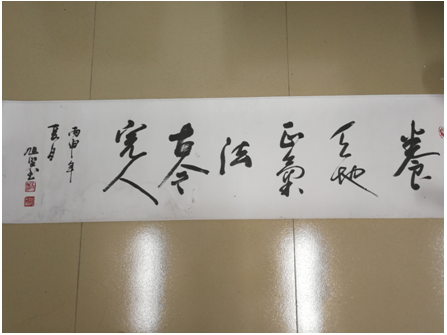 養
天地
正氣
法
古今
完人
丙申年
夏月
书